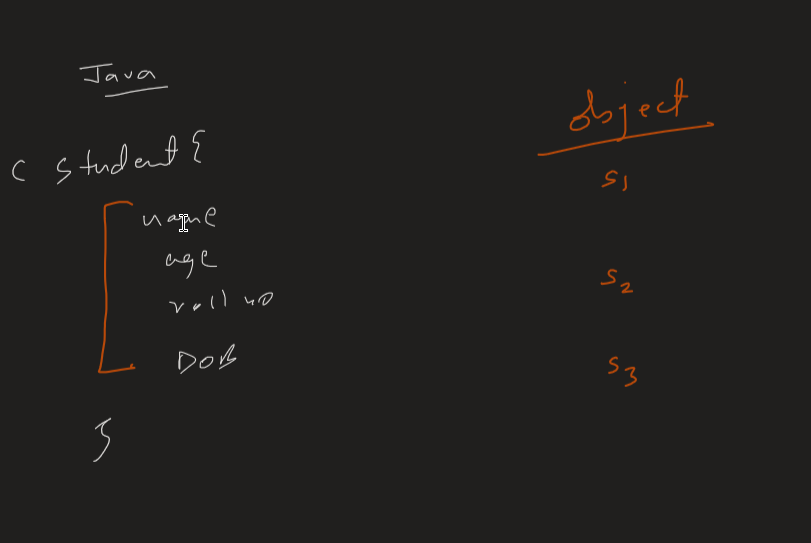 Java
c student {
name
age
roll no
DOB
}
object
s1
s2
s3